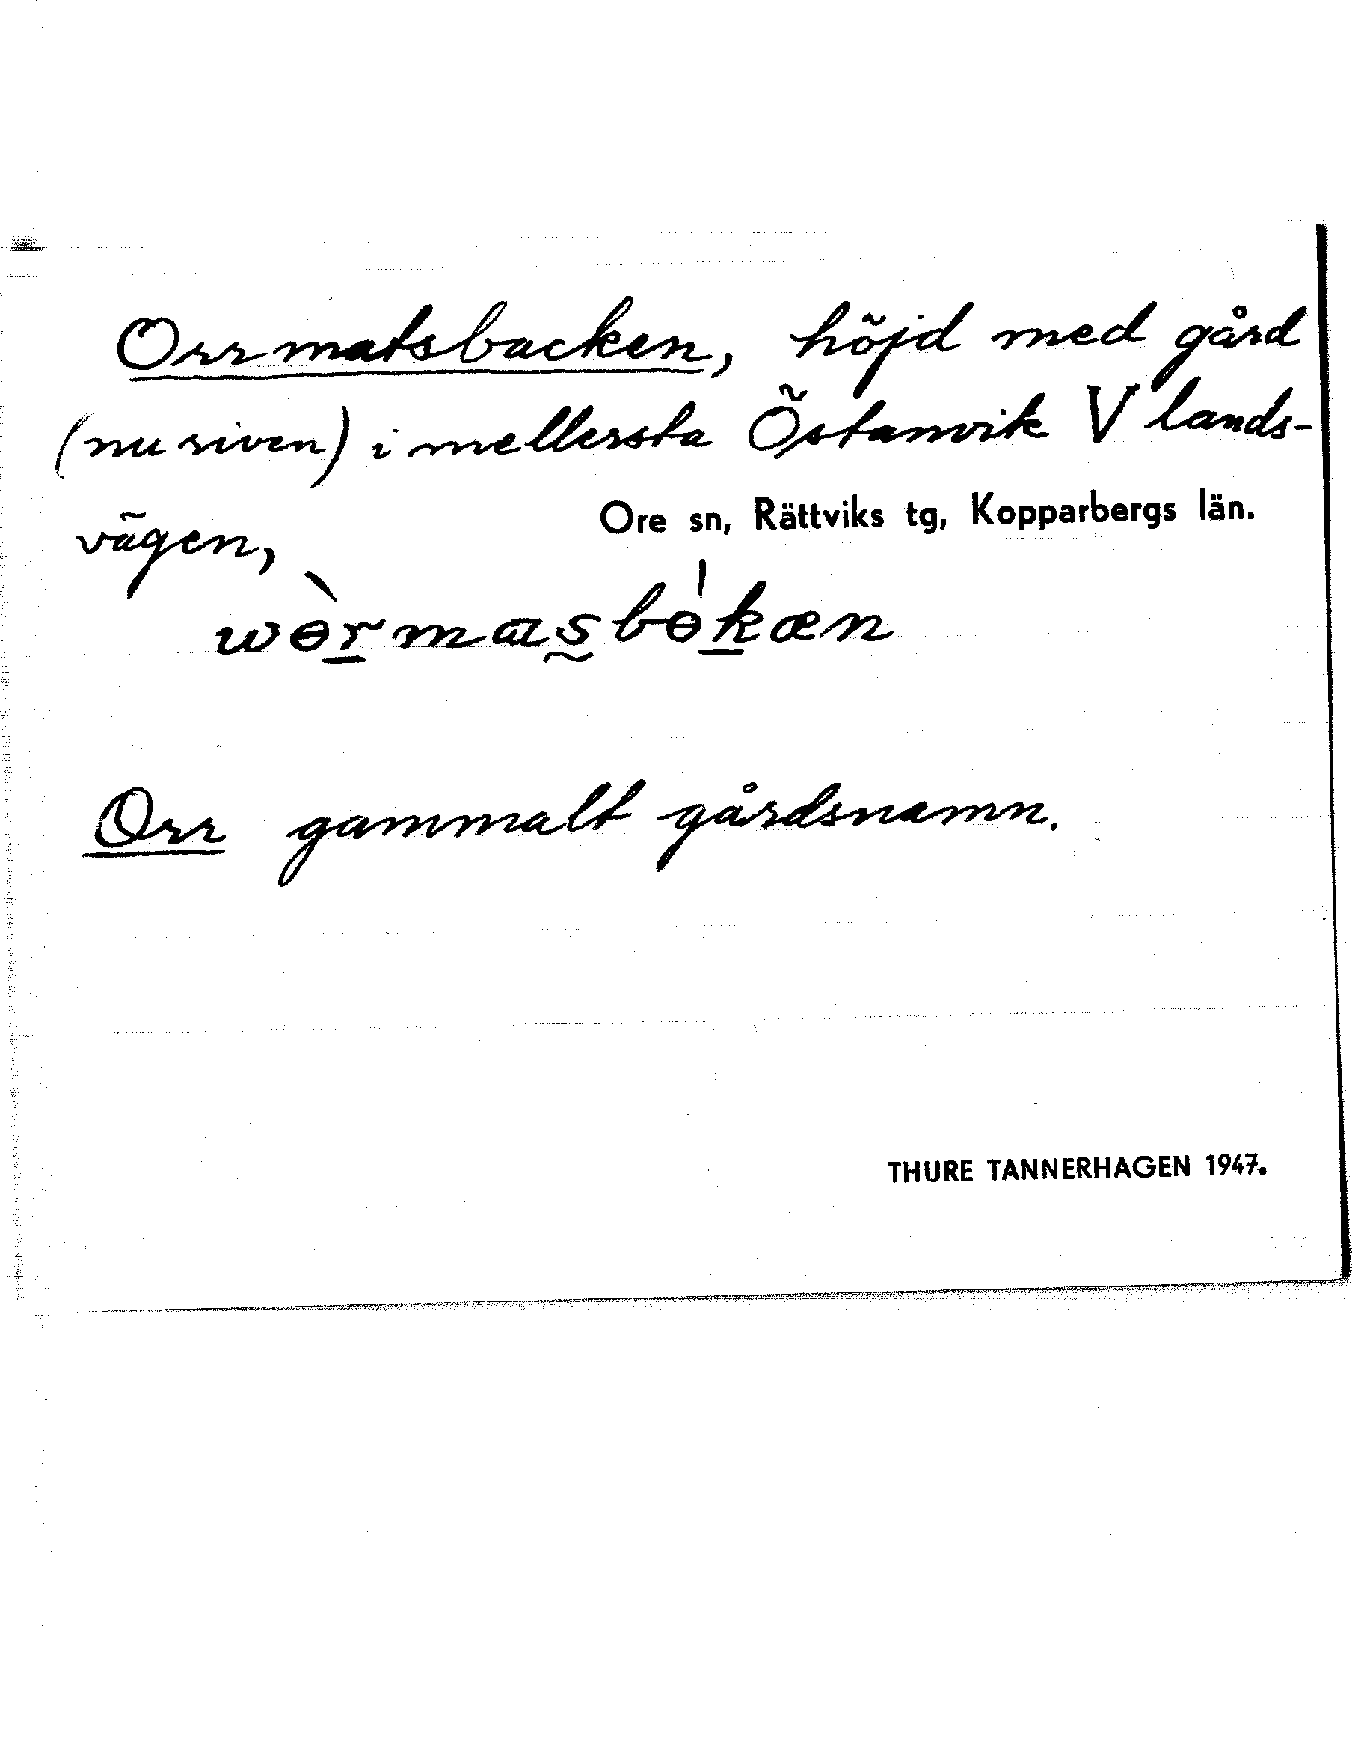 Orrmatsbacken, höjd med gård
(nu riven) i mellersta Östanvik V lands-
vägen,
Ore sn, Rättviks tg, Kopparbergs län.
wɵ̀rmasbɵ́kæn
Orr gammalt gårdsnamn.
THURE TANNERHAGEN 1947.